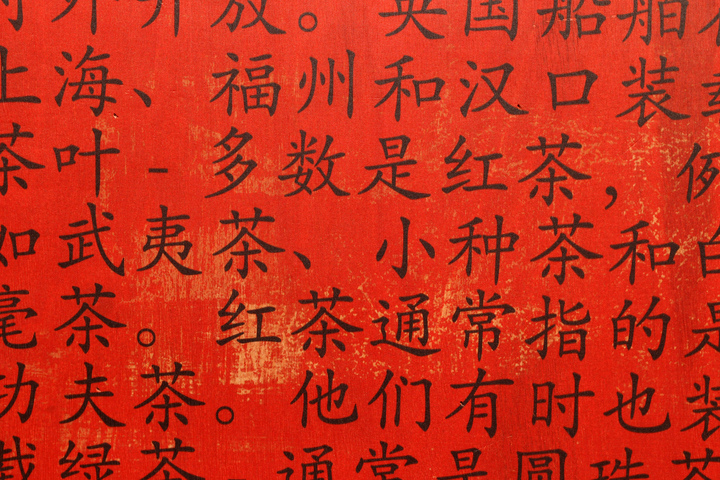 放。英国船舶
上海、福州和汉口装载
茶叶-多数是红茶，例
如武夷茶、小种茶和白
毫茶。红茶通常指的是
功夫茶。他们有时也装
载绿茶-通常是圆珠茶